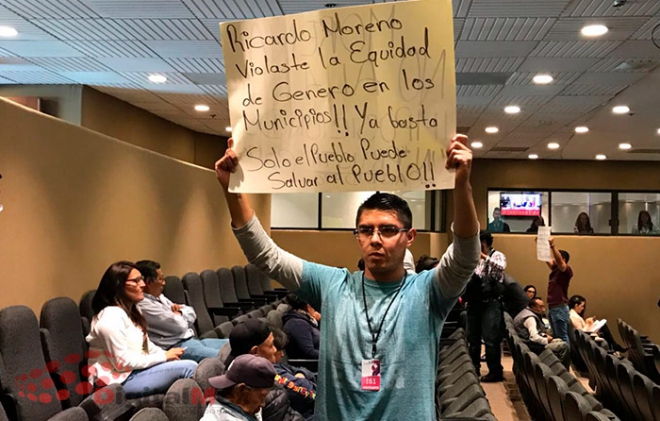 Ricardo Moreno
Violaste la Equidad
de Genero en los
Municipios!! Ya basta
Solo el Pueblo Puede
Salvar al PuEblO!!
DigitalM